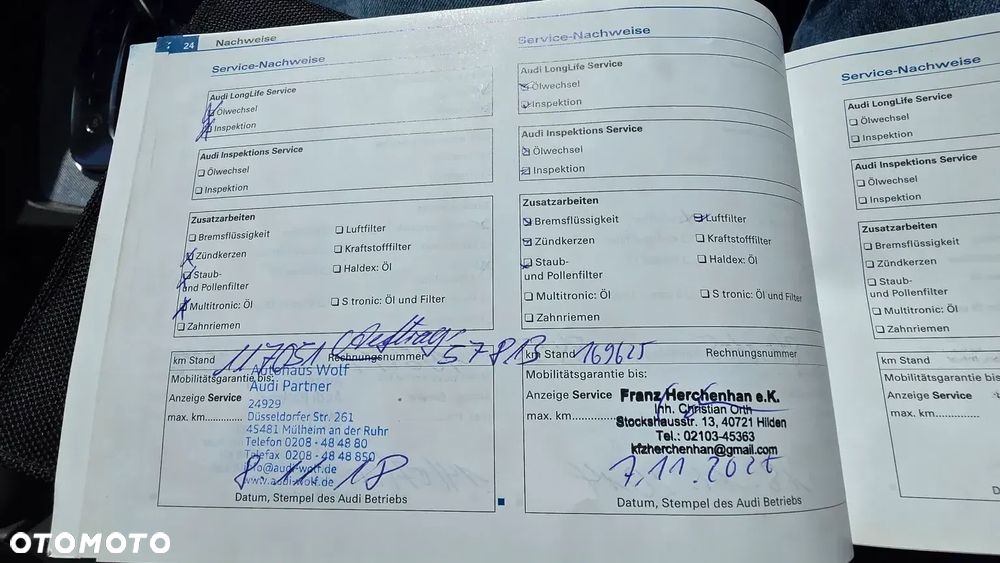 24 Nachweise
Service-Nachweise
Audi LongLife Service
Ölwechsel
Inspektion
Audi Inspektions Service
Ölwechsel
Inspektion
Zusatzarbeiten
Bremsflüssigkeit
Luftfilter
Zündkerzen
Kraftstofffilter
Staub-
und Pollenfilter
Haldex: Öl
Multitronic: Öl
S tronic: Öl und Filter
Zahnriemen
Auftrags
km Stand 117051 Rechnungsnummer 57813
Mobilitätsgarantie bis:
Autohaus Wolf
Audi Partner
Anzeige Service
24929
max. km
Düsseldorfer Str. 261
45481 Mülheim an der Ruhr
Telefon 0208 - 48 48 80
Telefax 0208 - 48 48 850
info@audi-wolf.de
www.audi-wolf.de
8.1.18
Datum, Stempel des Audi Betriebs
Service-Nachweise
Audi LongLife Service
Ölwechsel
Inspektion
Audi Inspektions Service
Ölwechsel
Inspektion
Zusatzarbeiten
Bremsflüssigkeit
Luftfilter
Zündkerzen
Kraftstofffilter
Staub-
und Pollenfilter
Haldex: Öl
Multitronic: Öl
S tronic: Öl und Filter
Zahnriemen
km Stand 169625 Rechnungsnummer
Mobilitätsgarantie bis:
Anzeige Service
max. km
Franz Herchenhan e.K.
Inh. Christian Orth
Stockshausstr. 13, 40721 Hilden
Tel.: 02103-45363
kfzherchenhan@gmail.com
7.11.
Datum, Stempel des Audi Betriebs
Service-Nachweise
Audi LongLife Service
Ölwechsel
Inspektion
Audi Inspektions Service
Ölwechsel
Inspektion
Zusatzarbeiten
Bremsflüssigkeit
Zündkerzen
Staub-
und Pollenfilter
Multitronic: Öl
Zahnriemen
km Stand
Mobilitätsgarantie bis
Anzeige Service
max. km
OTOMOTO